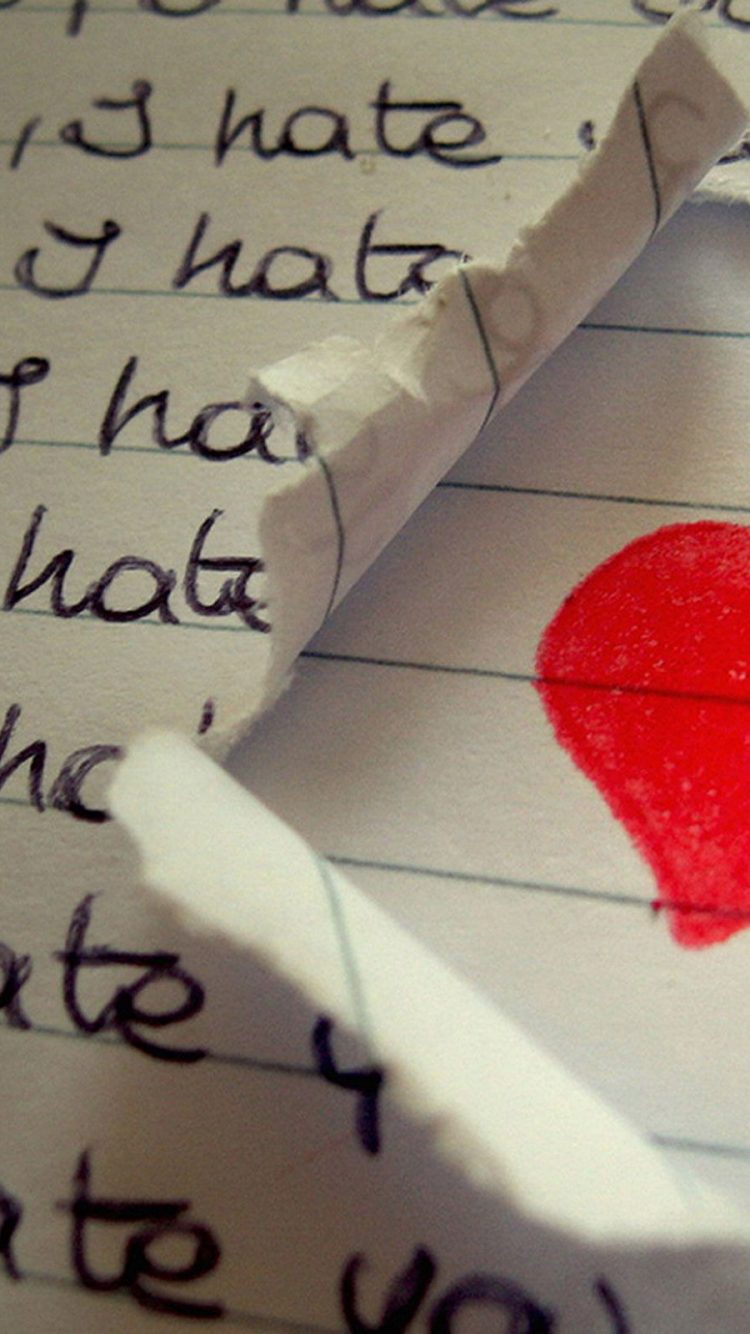 , I hate
I hate
I ha
hate
ha
ate y
ate you